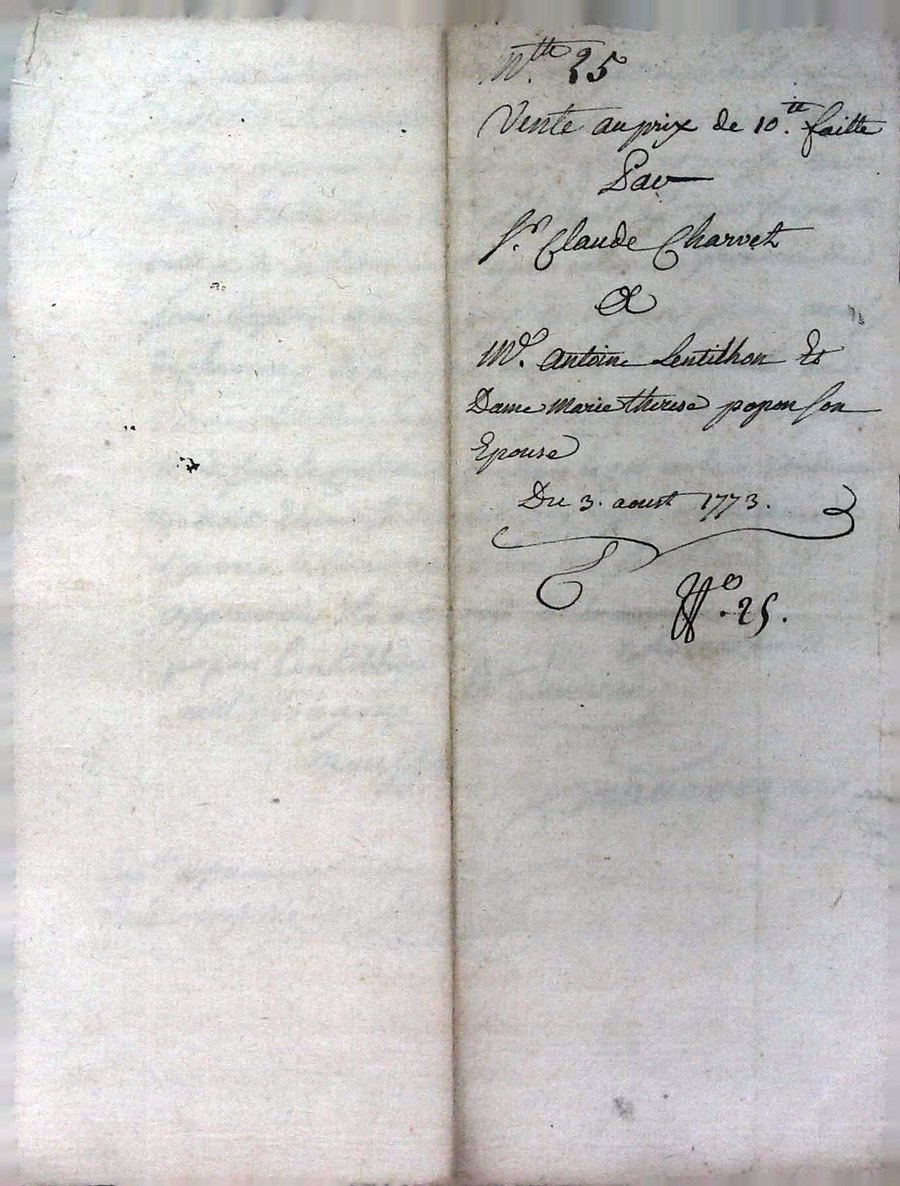 N.tte 25
Vente au prix de 10.tt faitte
Par
Sr. Claude Charvet
a
Md. antoine Lentilhon Et
Dame Marie therese popon son
Epouse
Du 3. aoust 1773.
No. 25.